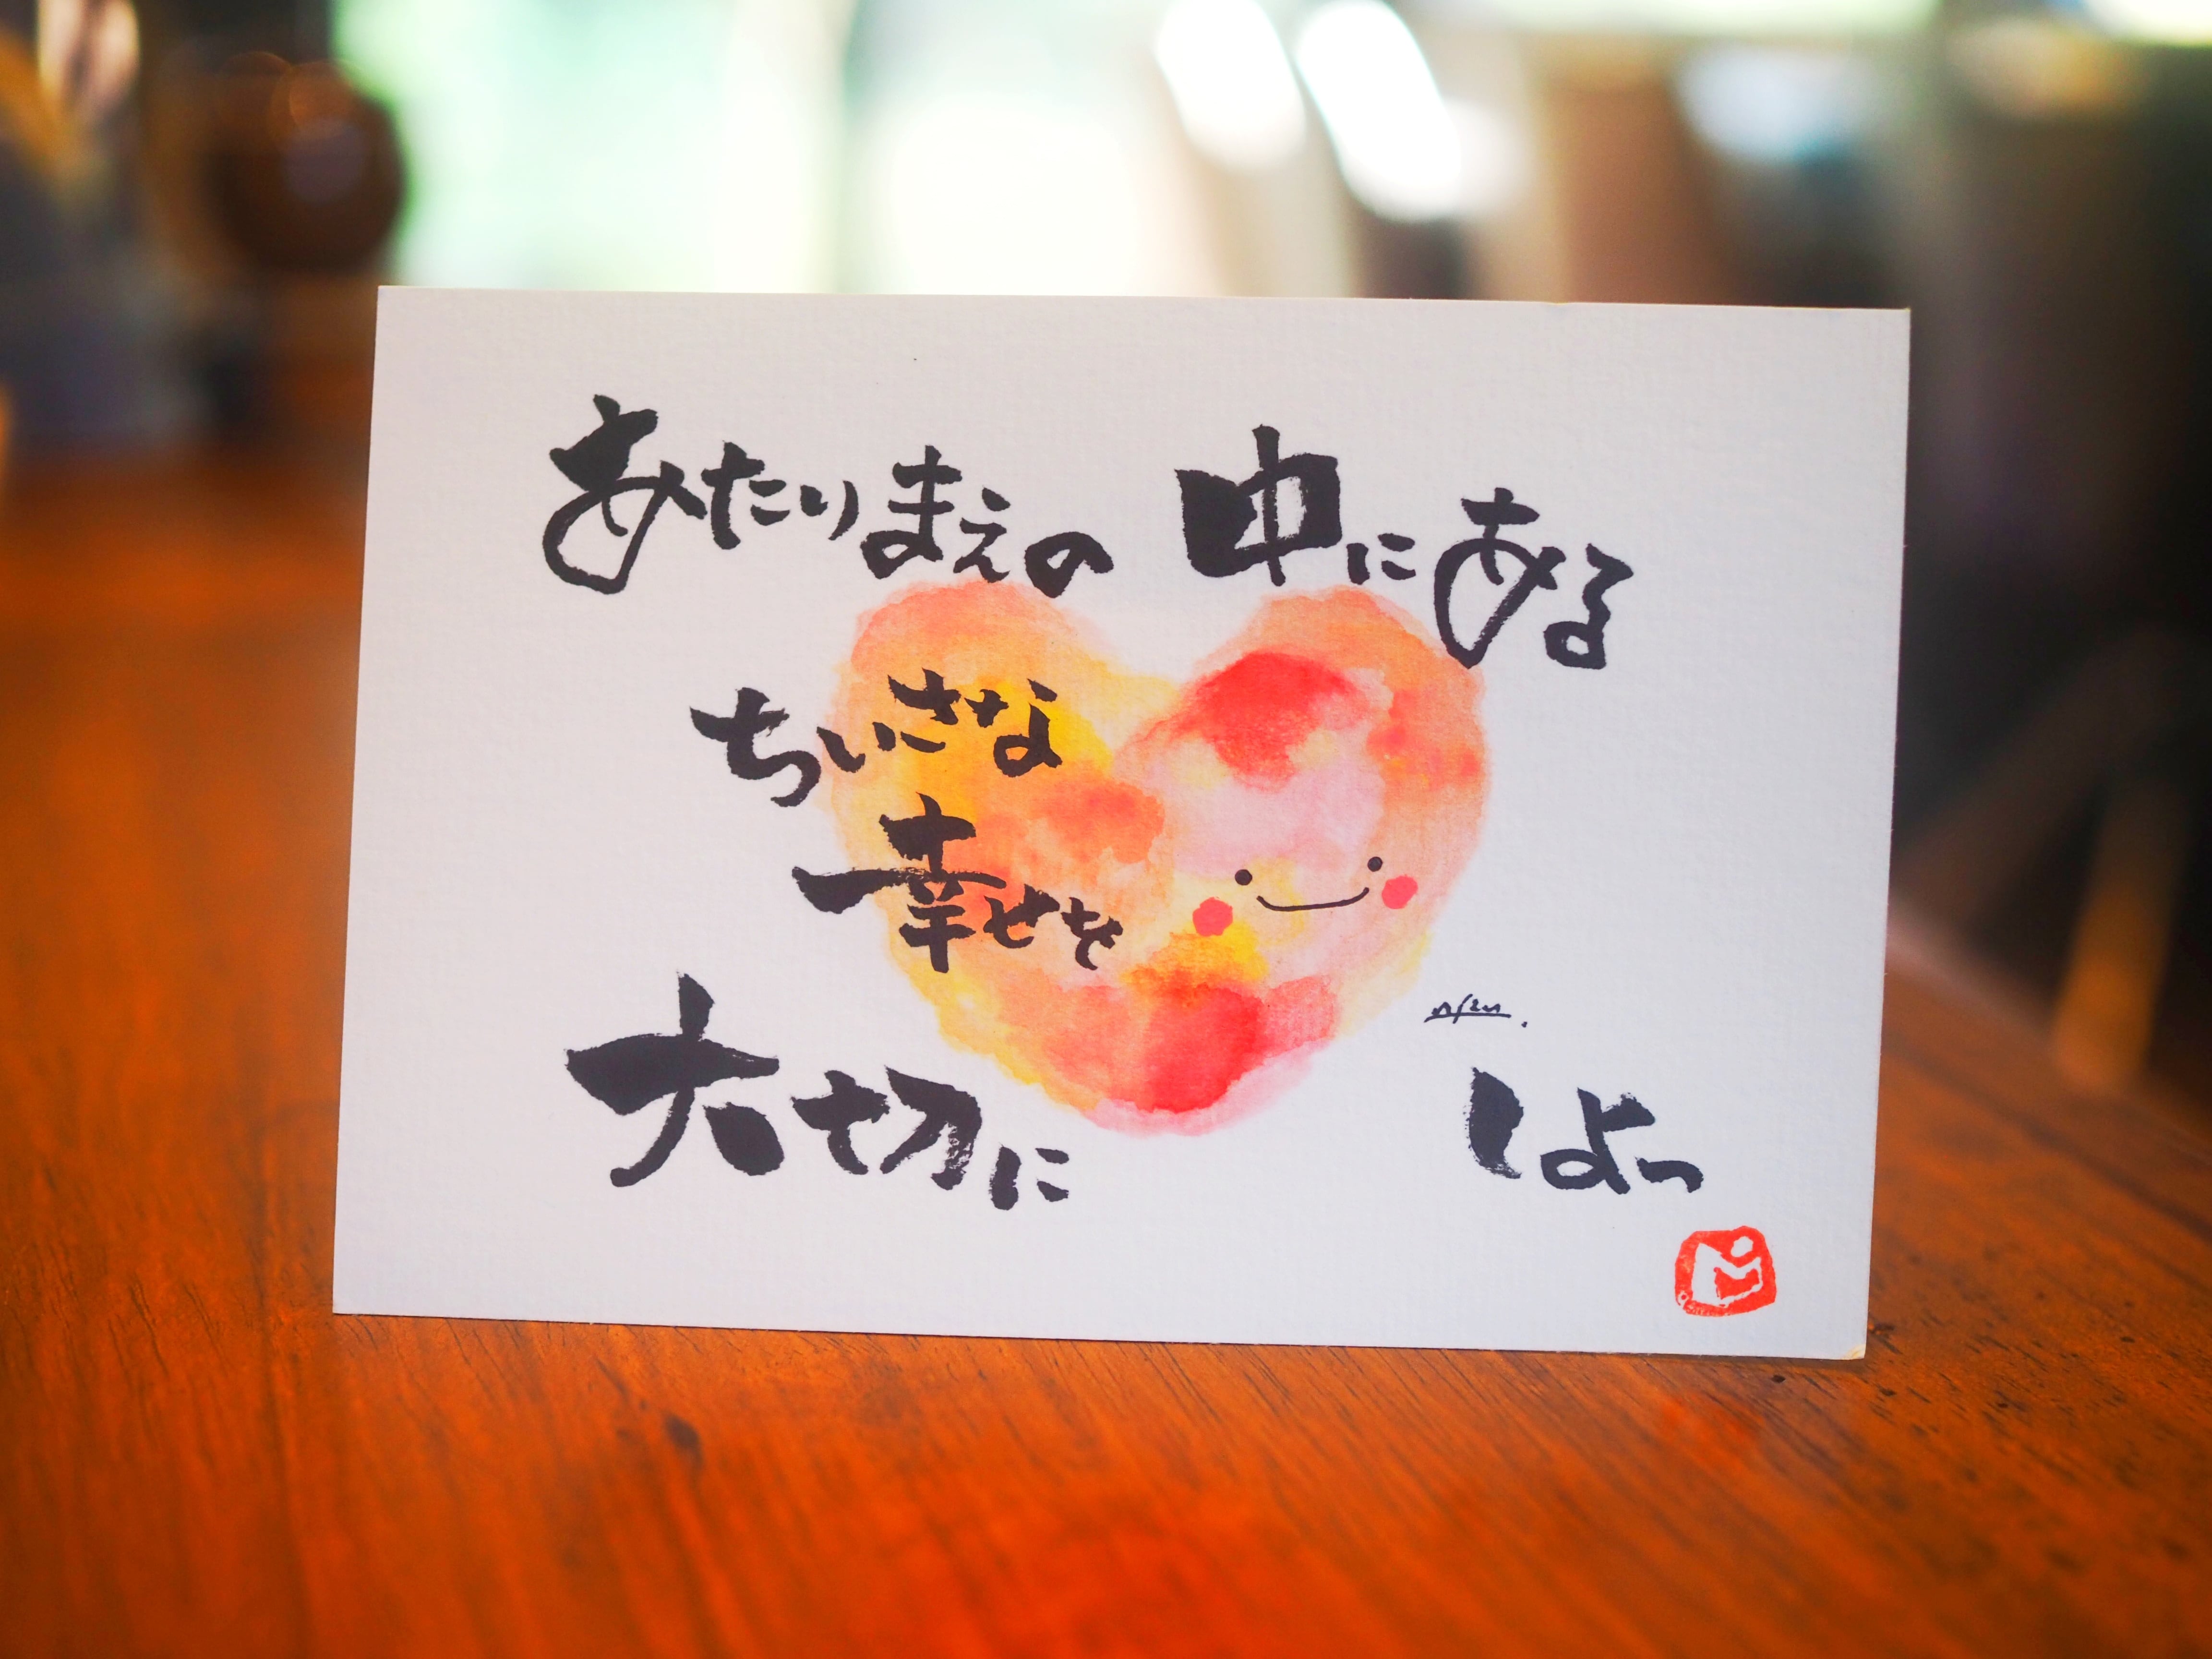 あたりまえの 中にある
ちいさな
幸せを
大切に しよっ